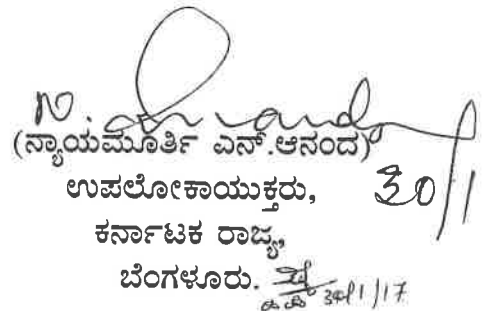 N. Anand 30/1
(ನ್ಯಾಯಮೂರ್ತಿ ಎನ್.ಆನಂದ)
ಉಪಲೋಕಾಯುಕ್ತರು,
ಕರ್ನಾಟಕ ರಾಜ್ಯ,
ಬೆಂಗಳೂರು. 30/1/17